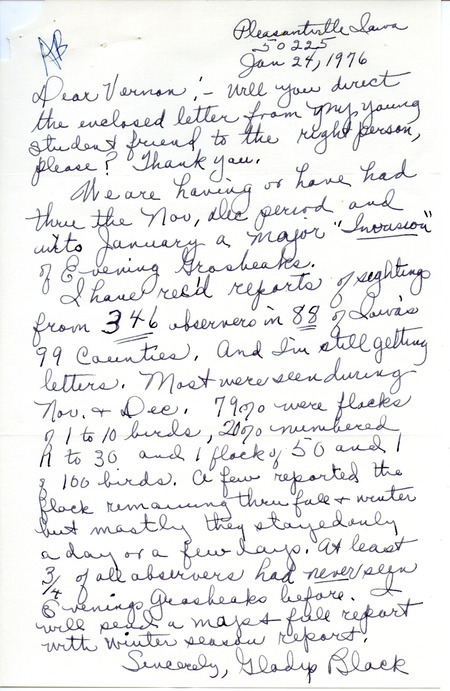 Pleasantville Iowa
50225
AB
Jan 24, 1976
Dear Vernon:- Will you direct
the enclosed letter from my young
student friend to the right person,
please? Thank you.
We are having or have had
thru the Nov, Dec period and
into January a major "Invasion"
of Evening Grosbeaks.
I have rec'd reports of sightings
from 346 observers in 88 of Iowa's
99 Counties. And I'm still getting
letters. Most were seen during
Nov. & Dec. 79% were flocks
of 1 to 10 birds, 20% numbered
11 to 30 and 1 flock of 50 and 1
of 100 birds. A few reported the
flock remaining thru fall & winter
but mostly they stayed only
a day or a few days. At least
3/4 of all observers had never seen
Evening Grosbeaks before. I
will send a map & full report
with winter season report.
Sincerely, Gladys Black